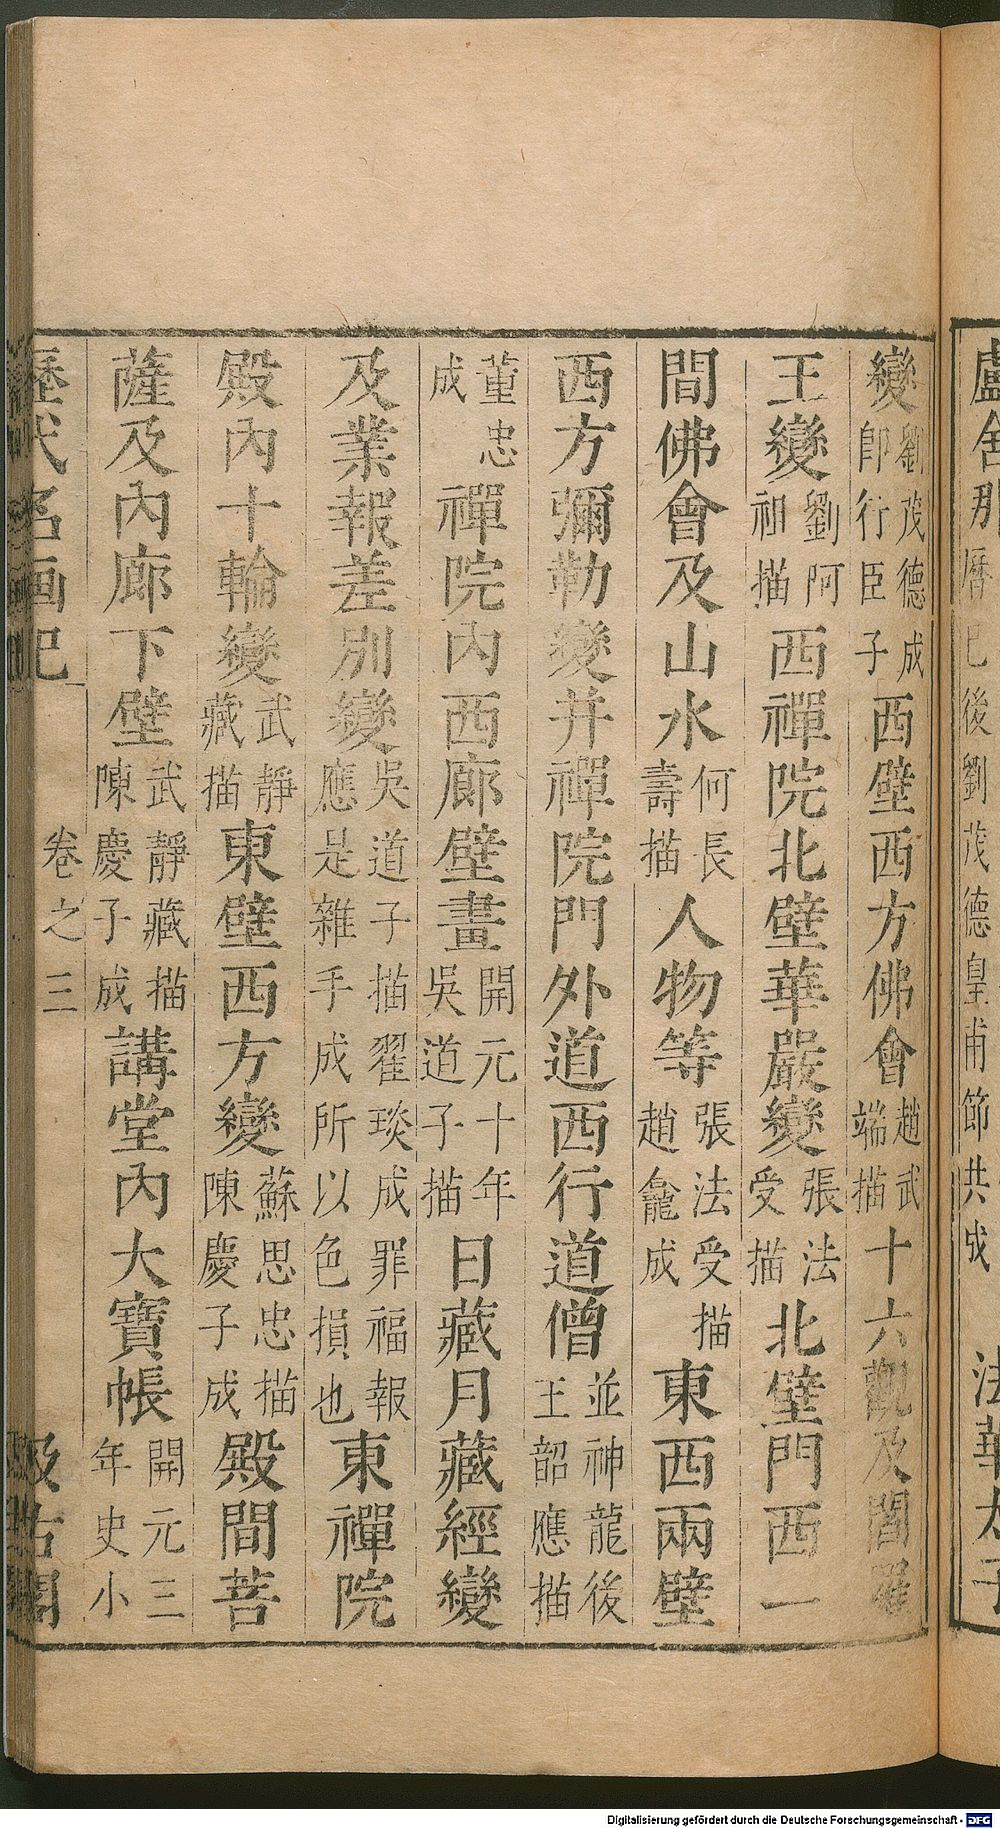 盧舍那曆已後劉茂德皇甫節共成 法華太子
變劉茂德成即行臣子西壁西方佛會趙武端描十六觀及閻羅
王變劉阿祖描西禪院北壁華嚴變張法受描北壁門西一
間佛會及山水何長壽描人物等張法受描趙龕成東西兩壁
西方彌勒變并禪院門外道西行道僧並神龍後王韶應描
董忠成禪院內西廊壁畫開元十年吳道子描日藏月藏經變
及業報差別變吳道子描翟琰成罪福報應是雜手成所以色損也東禪院
殿內十輪變武靜藏描東壁西方變蘇思忠描陳慶子成殿間菩
薩及內廊下壁武靜藏描陳慶子成講堂內大寶帳開元三年史小
歷代名画記 卷之三 汲古閣
Digitalisierung gefördert durch die Deutsche Forschungsgemeinschaft - DFG